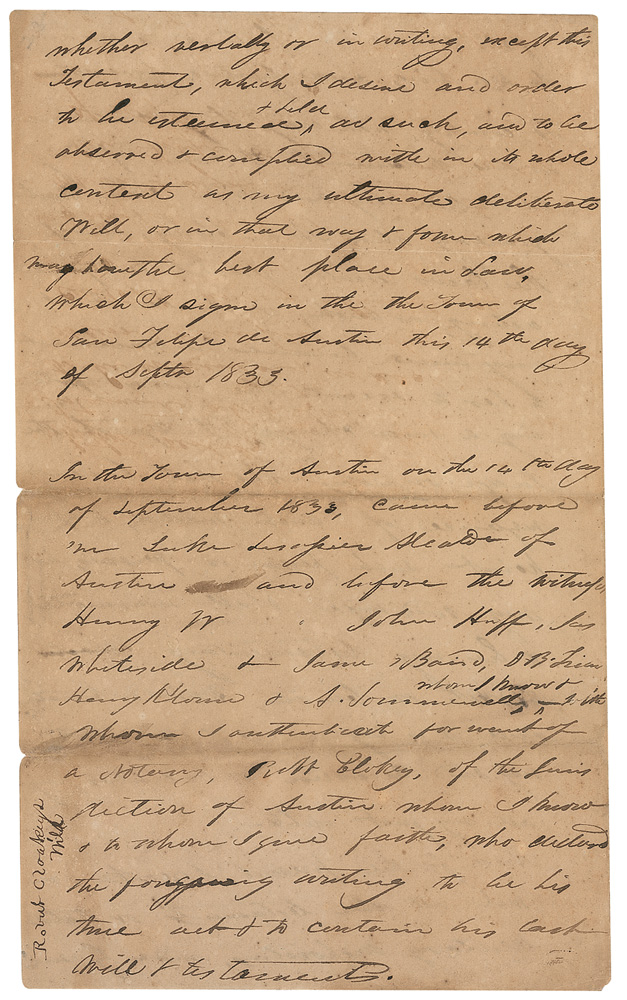 whether verbally or in writing, except this
Testament, which I desire and order
to be esteemed, & held as such, and to be
observed & complied with in its whole
content as my ultimate deliberate
Will, or in that way & form which
may have the best place in Law,
which I sign in the the Town of
San Felipe de Austin this 14th day
of Septr 1833.
In the Town of Austin on the 14th day
of September 1833, came before
me Luke Lesassier Alcalde of
Austin and before the witness,
Henry W John Huff, Jas
Whiteside & James Baird,
Henry & A. Sommervell, whom I know & with
whom I authenticate for want of
a Notary, Robt Clokey, of the Juris
diction of Austin whom I know
& to whom I give faith, who declared
the foregoing writing to be his
true act & to contain his last
Will & testament.
Robert Cloakeys
Will